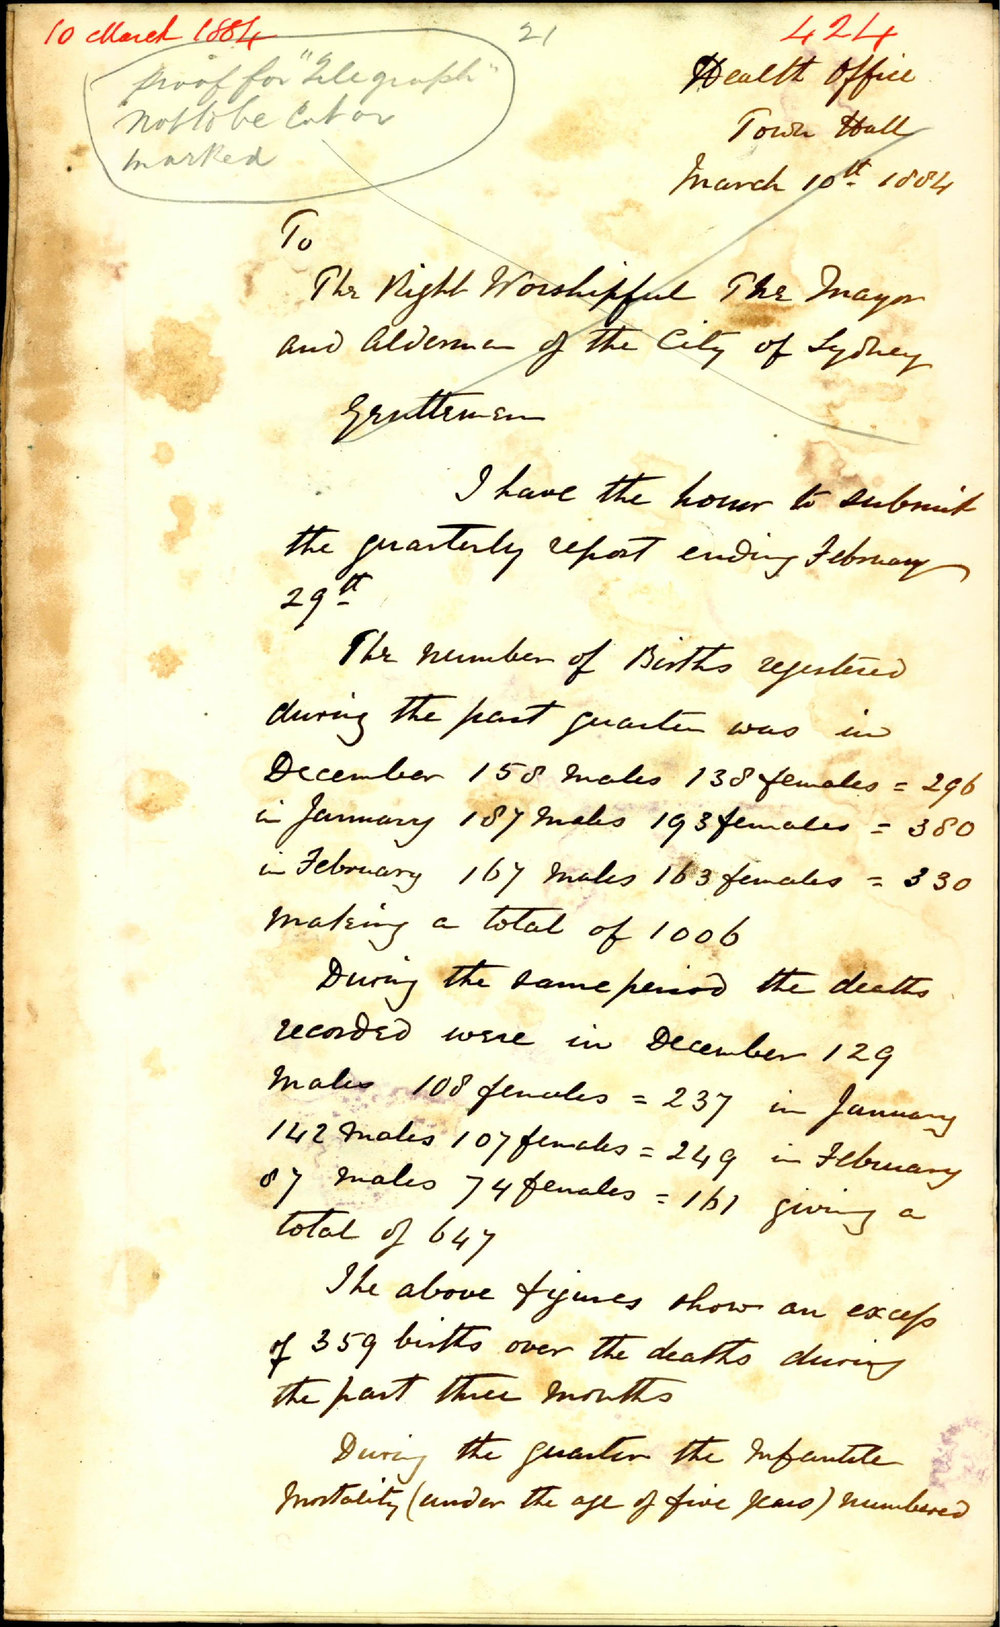 10 March 1884
21
424
Proof for "Telegraph"
Not to be Cut or
marked
Health Office
Town Hall
March 10th 1884
To
The Right Worshipful The Mayor
and Aldermen of the City of Sydney
Gentlemen
I have the honor to submit
the quarterly report ending February
29th
The number of Births registered
during the past quarter was in
December 158 Males 138 females = 296
in January 187 Males 193 females = 380
in February 167 Males 163 females = 330
Making a total of 1006
During the same period the deaths
recorded were in December 129
Males 108 females = 237 in January
142 Males 107 females = 249 in February
87 Males 74 females = 161 giving a
total of 647
The above figures show an excess
of 359 births over the deaths during
the past three Months
During the quarter the Infantile
Mortality (under the age of five years) numbered